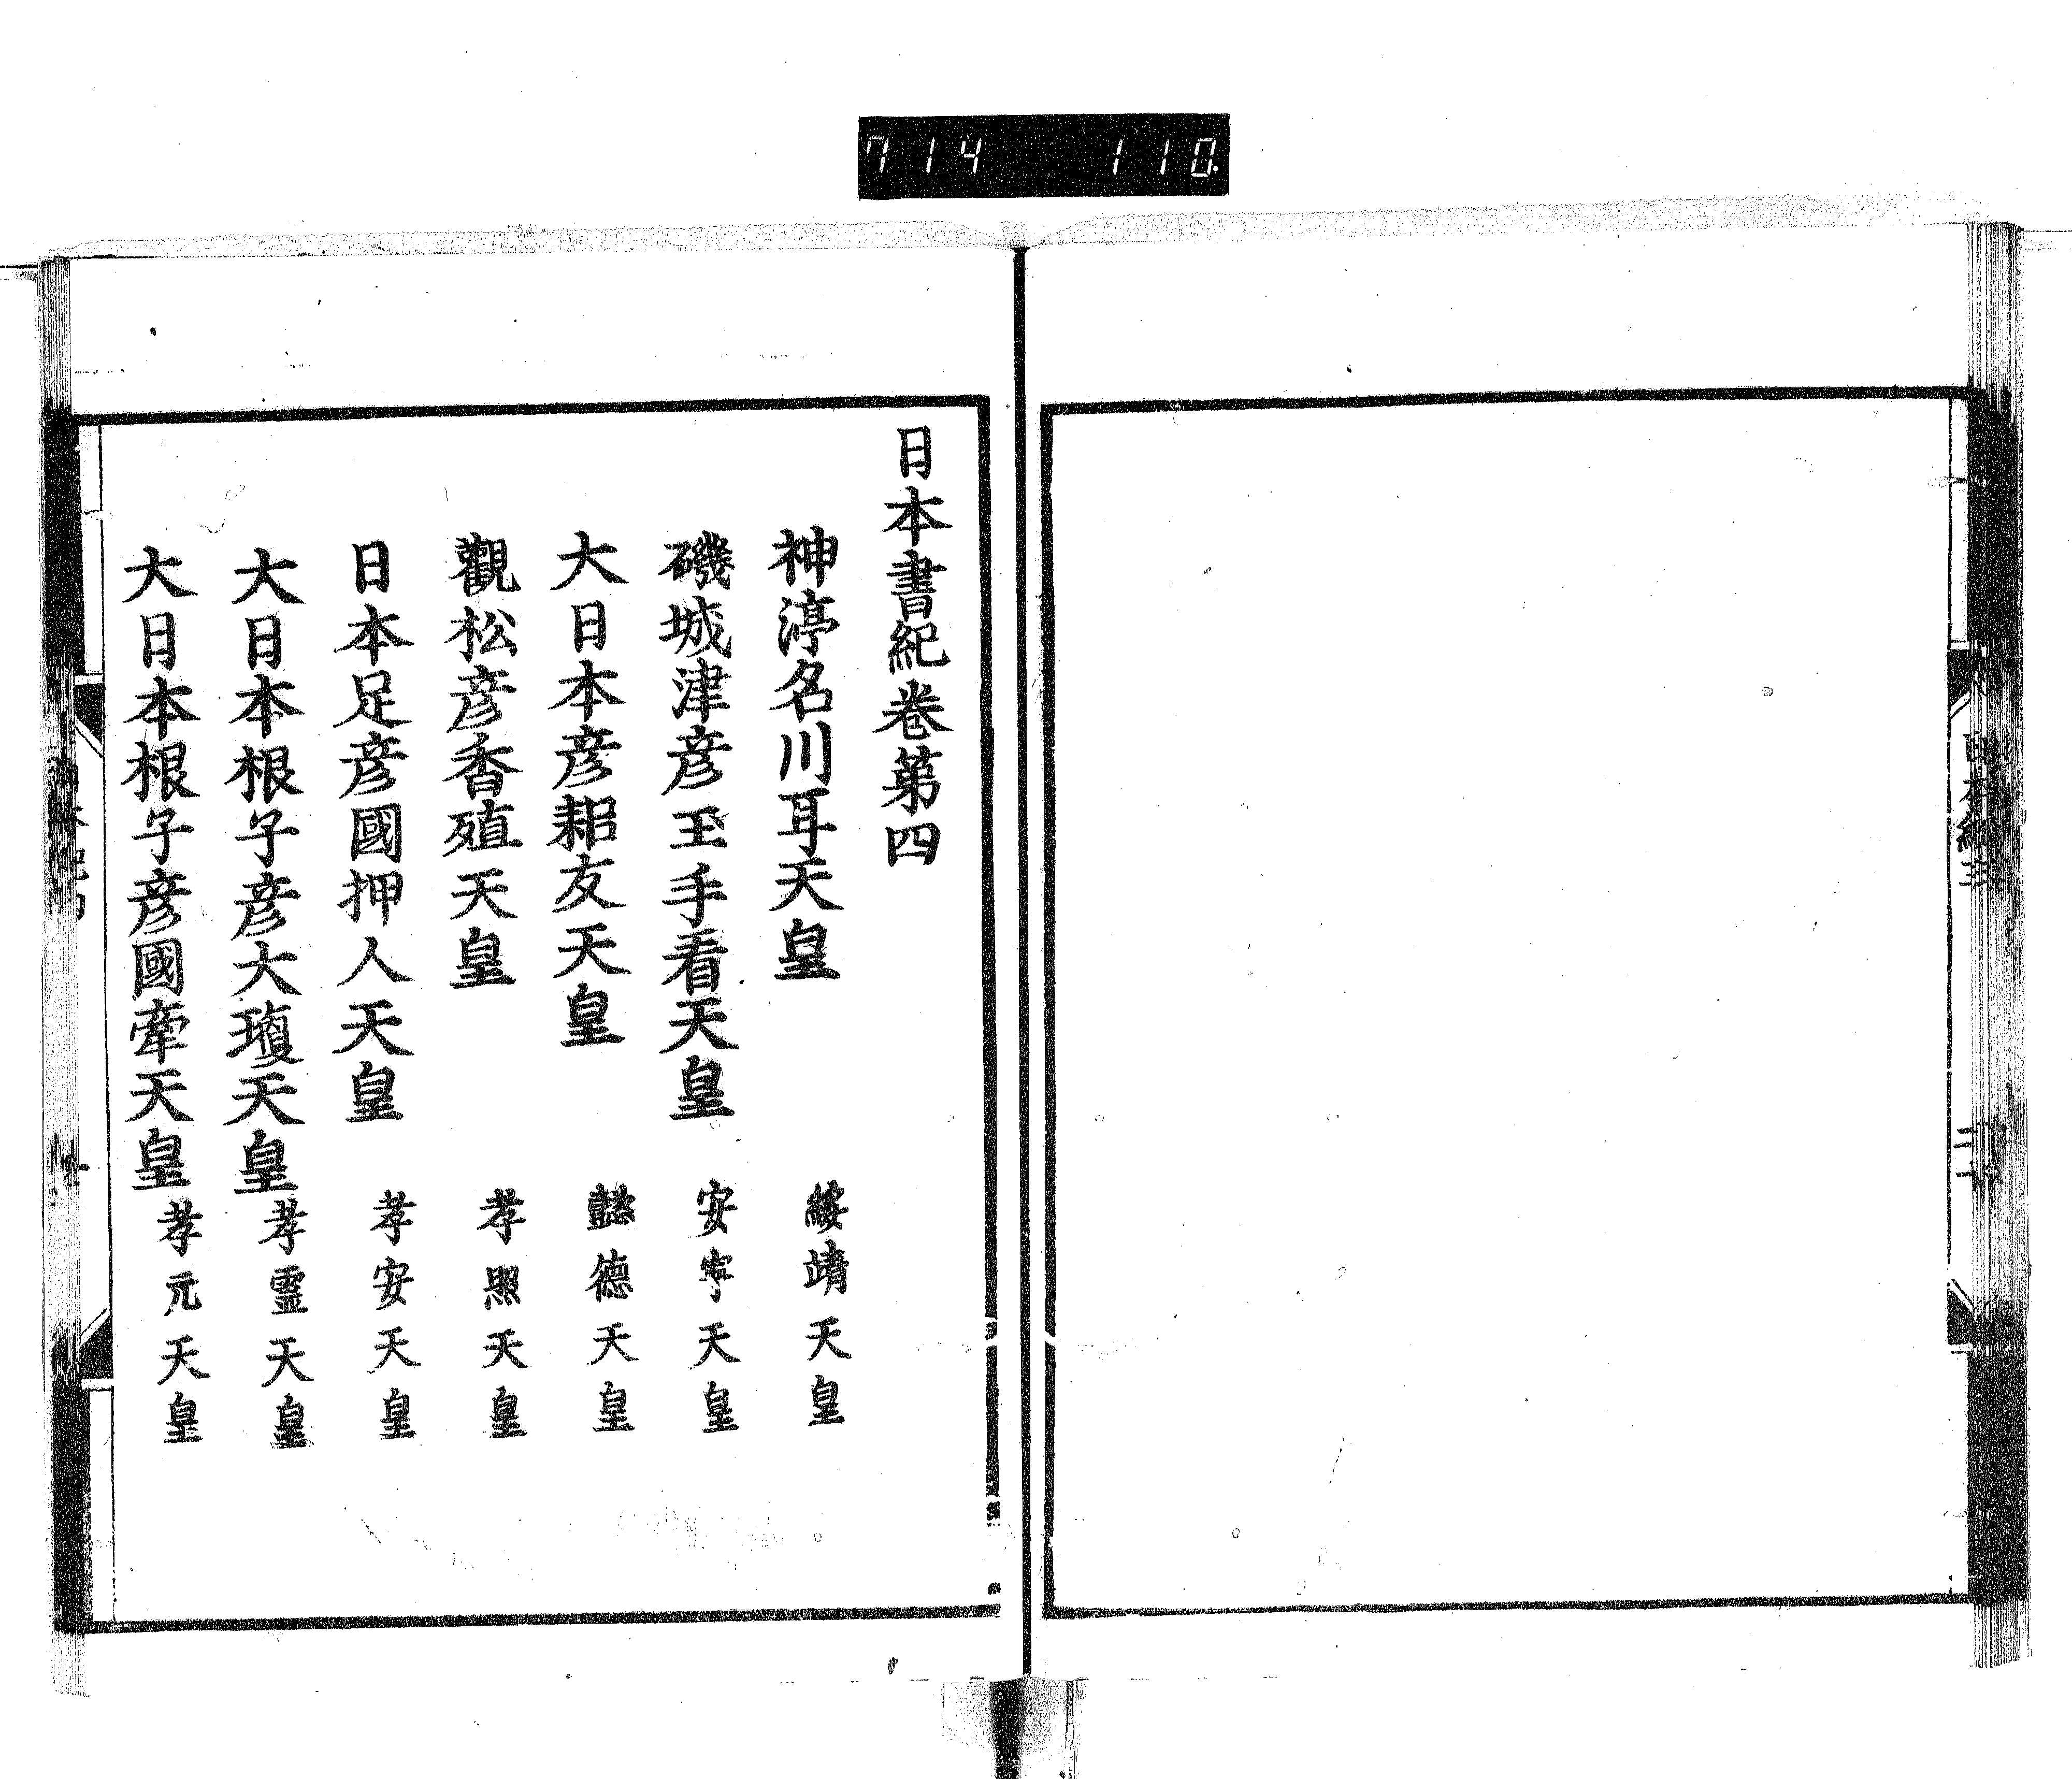 714 110
日本書紀卷第四
神渟名川耳天皇 綏靖天皇
磯城津彦玉手看天皇 安寧天皇
大日本彦耜友天皇 懿德天皇
觀松彦香殖天皇 孝照天皇
日本足彦國押人天皇 孝安天皇
大日本根子彦大瓊天皇 孝霊天皇
大日本根子彦國牽天皇 孝元天皇